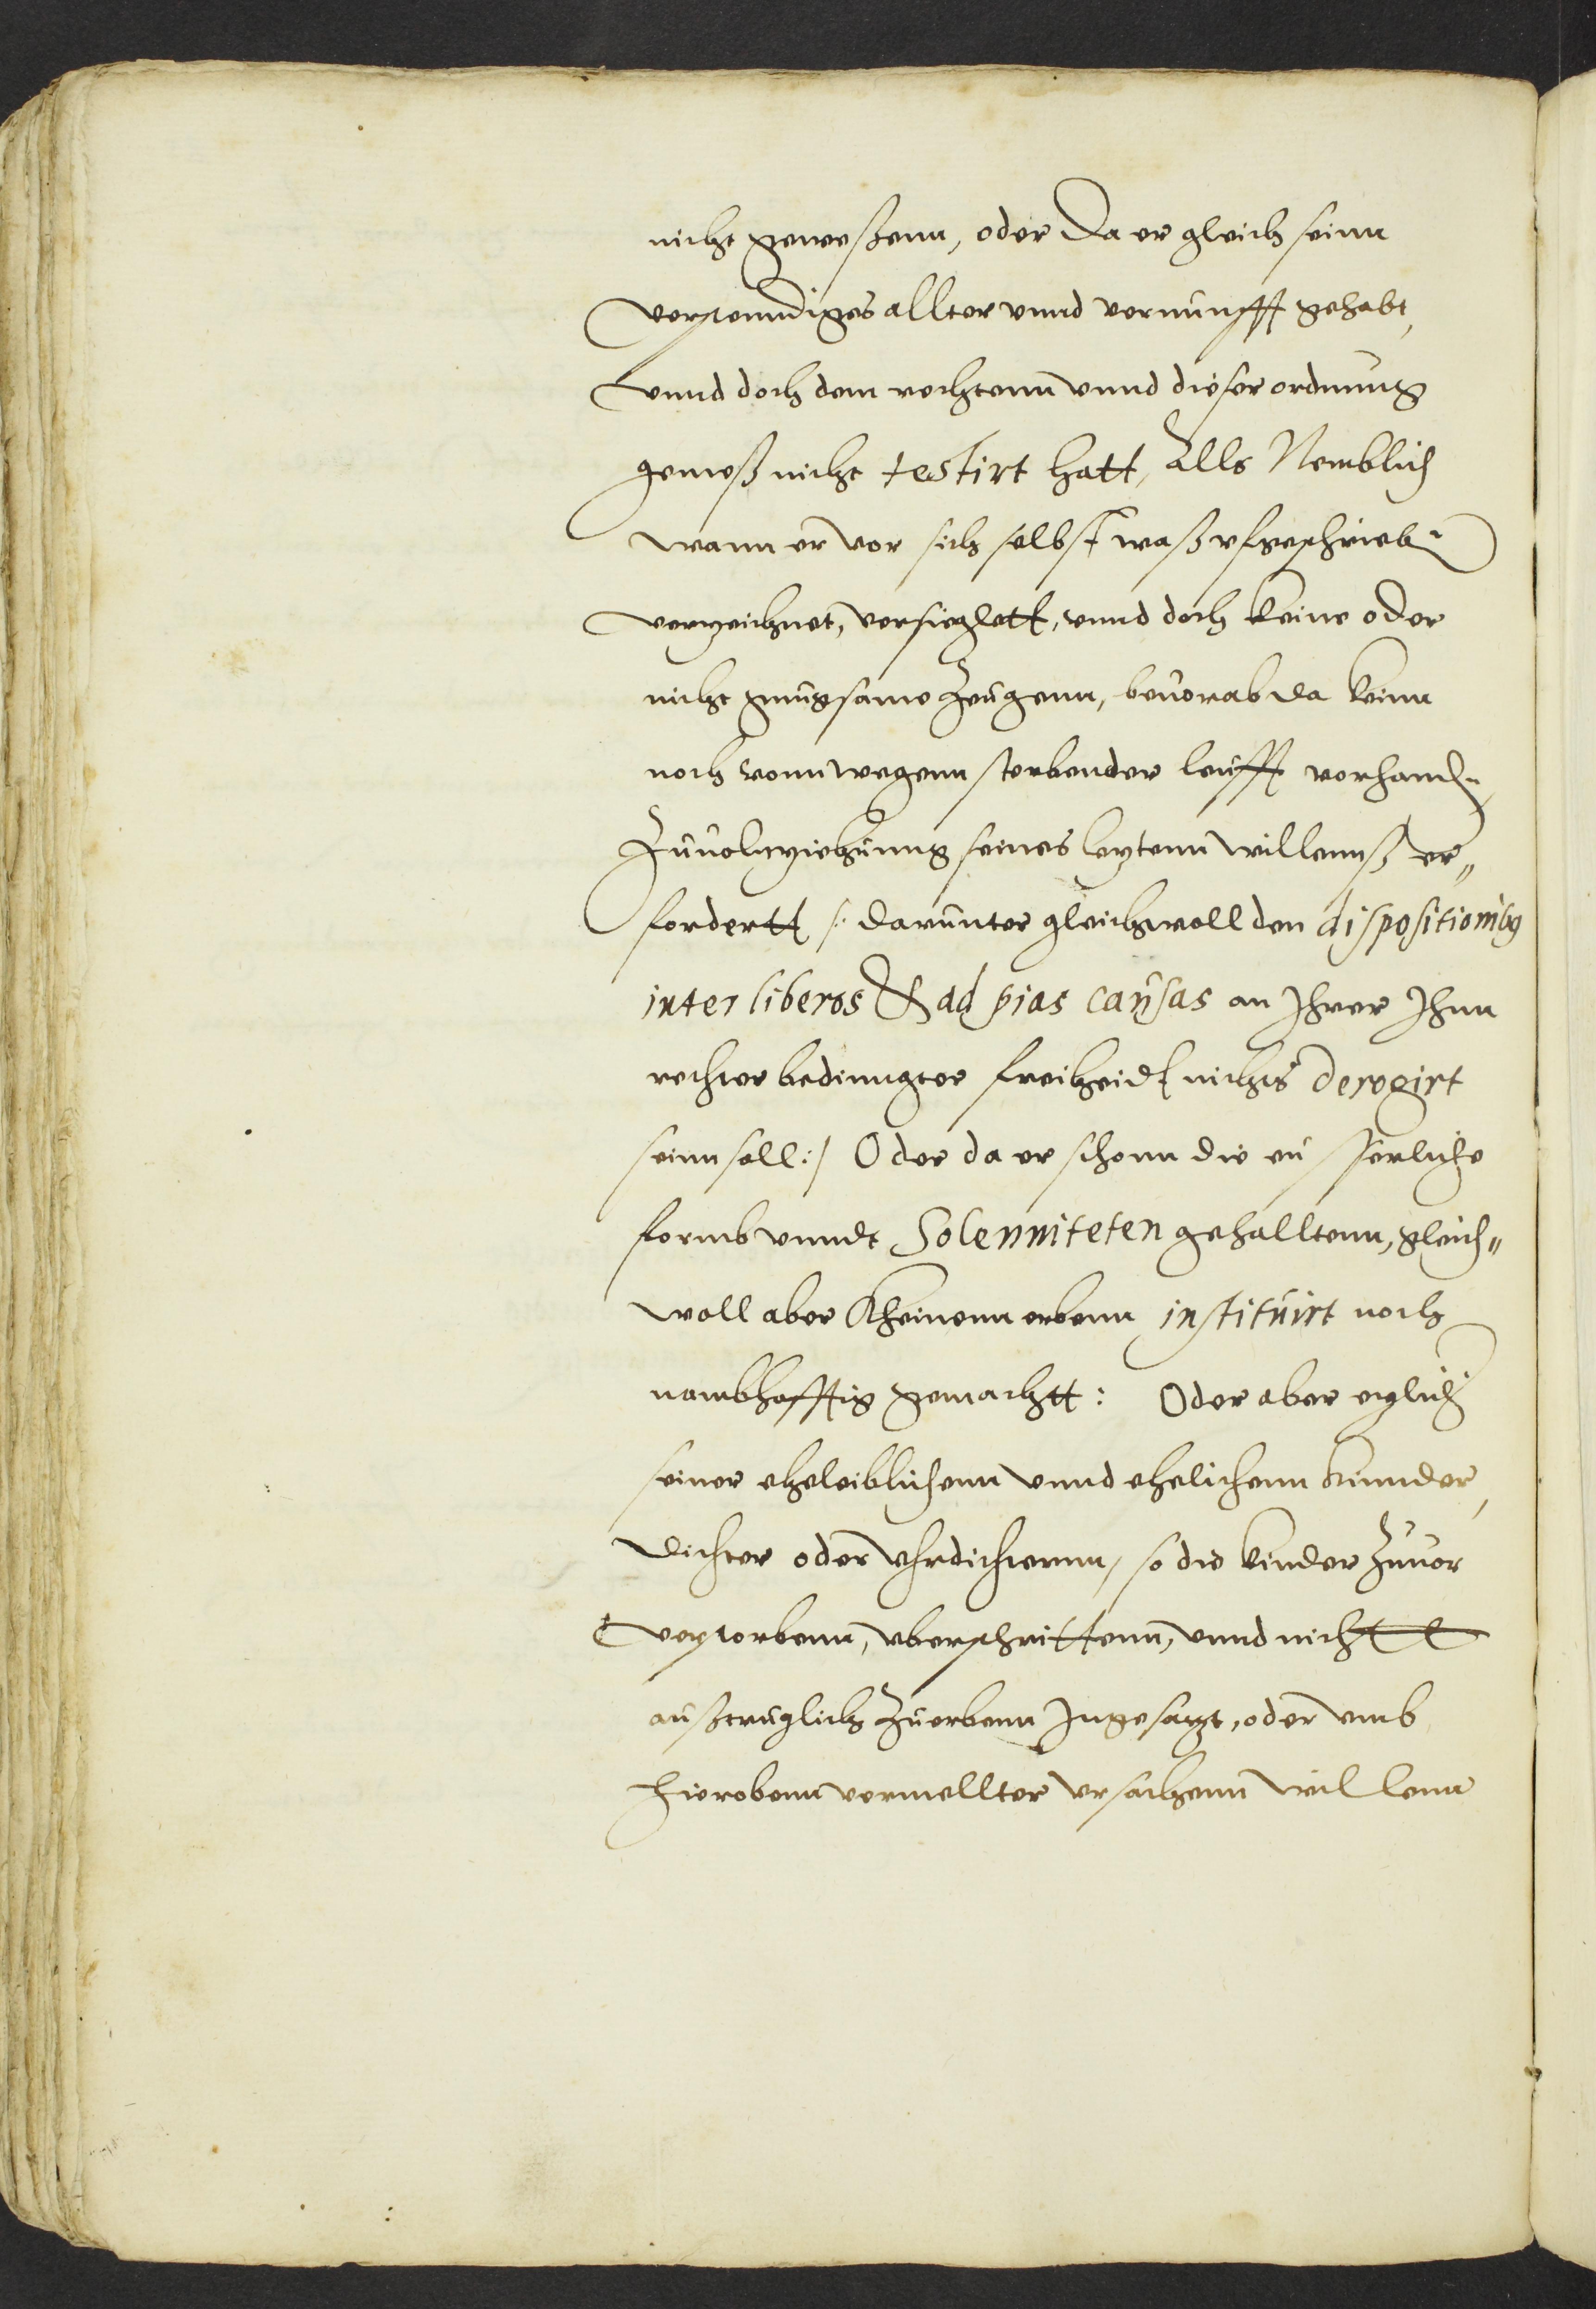 nicht geweßenn, oder da er gleich seinn
verstenndiges allter vnnd vernunfft gehabt,
vnnd doch dem rechtenn vnnd dieser ordnung
gemeß nicht testirt hatt, Alls Nemblich
wann er vor sich selbst waß vfgeschrieben
verzeichnet, versieglett, vnnd doch keine oder
nicht gnugsame Zeugenn, beuorab da keine
noch vonn wegenn sterbender leufft vorhanden
Zuuolnziehunng seines leztenn willennß er„
fordertt /: darunter gleichwoll den dispositionibus
inter liberos & ad pias causas an Ihrer Ihnn
rechter bedinngter freiheidt nichts derogirt
seinn soll :/ Oder da er schonn die eusserliche
form vnndt Solenniteten gehalltenn, gleich„
woll aber kheinenn erbenn instituirt noch
nambhafftig gemachtt: Oder aber ezlich
seiner eheleiblichenn vnnd ehelichenn kinnder,
dichter oder Vhrdichternn, so die kinder Zuuor
verstorbenn, vberschrittenn, vnnd nichtt
außtruglich Zuerbenn Ingesazt, oder vmb
hierobenn vermellter vrsachenn willenn